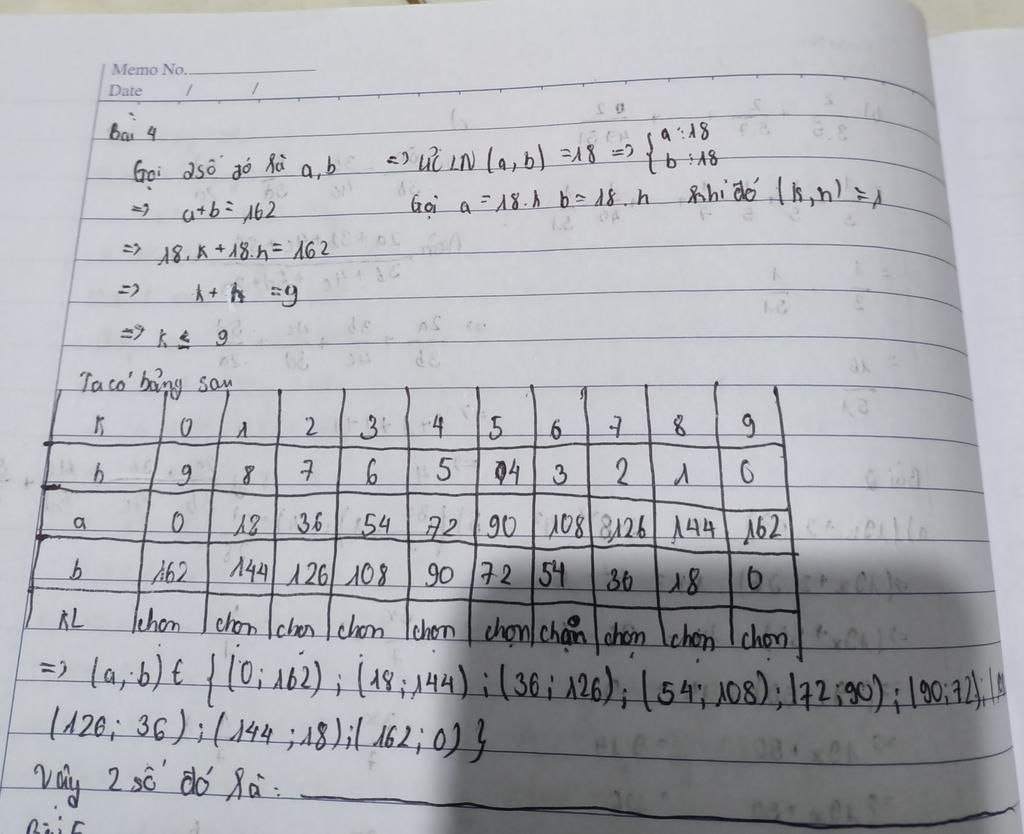 Memo No.
Date / /
Bài 4
Gọi 2 số đó là a, b => ƯCLN (a, b) = 18 => { a ⋮ 18
b ⋮ 18
=> a+b = 162 Gọi a = 18.k b = 18.n khi đó (k, n) = 1
=> 18.k + 18.n = 162
=> k + n = 9
=> k ≤ 9
Ta có bảng sau
k 0 1 2 3 4 5 6 7 8 9
n 9 8 7 6 5 4 3 2 1 0
a 0 18 36 54 72 90 108 126 144 162
b 162 144 126 108 90 72 54 36 18 0
KL chọn chọn chọn chọn chọn chọn chọn chọn chọn chọn
=> (a, b) ∈ { (0; 162) ; (18; 144) ; (36; 126) ; (54; 108) ; (72; 90) ; (90; 72) ;
(126; 36) ; (144; 18) ; (162; 0) }
Vậy 2 số đó là:
Bài 5